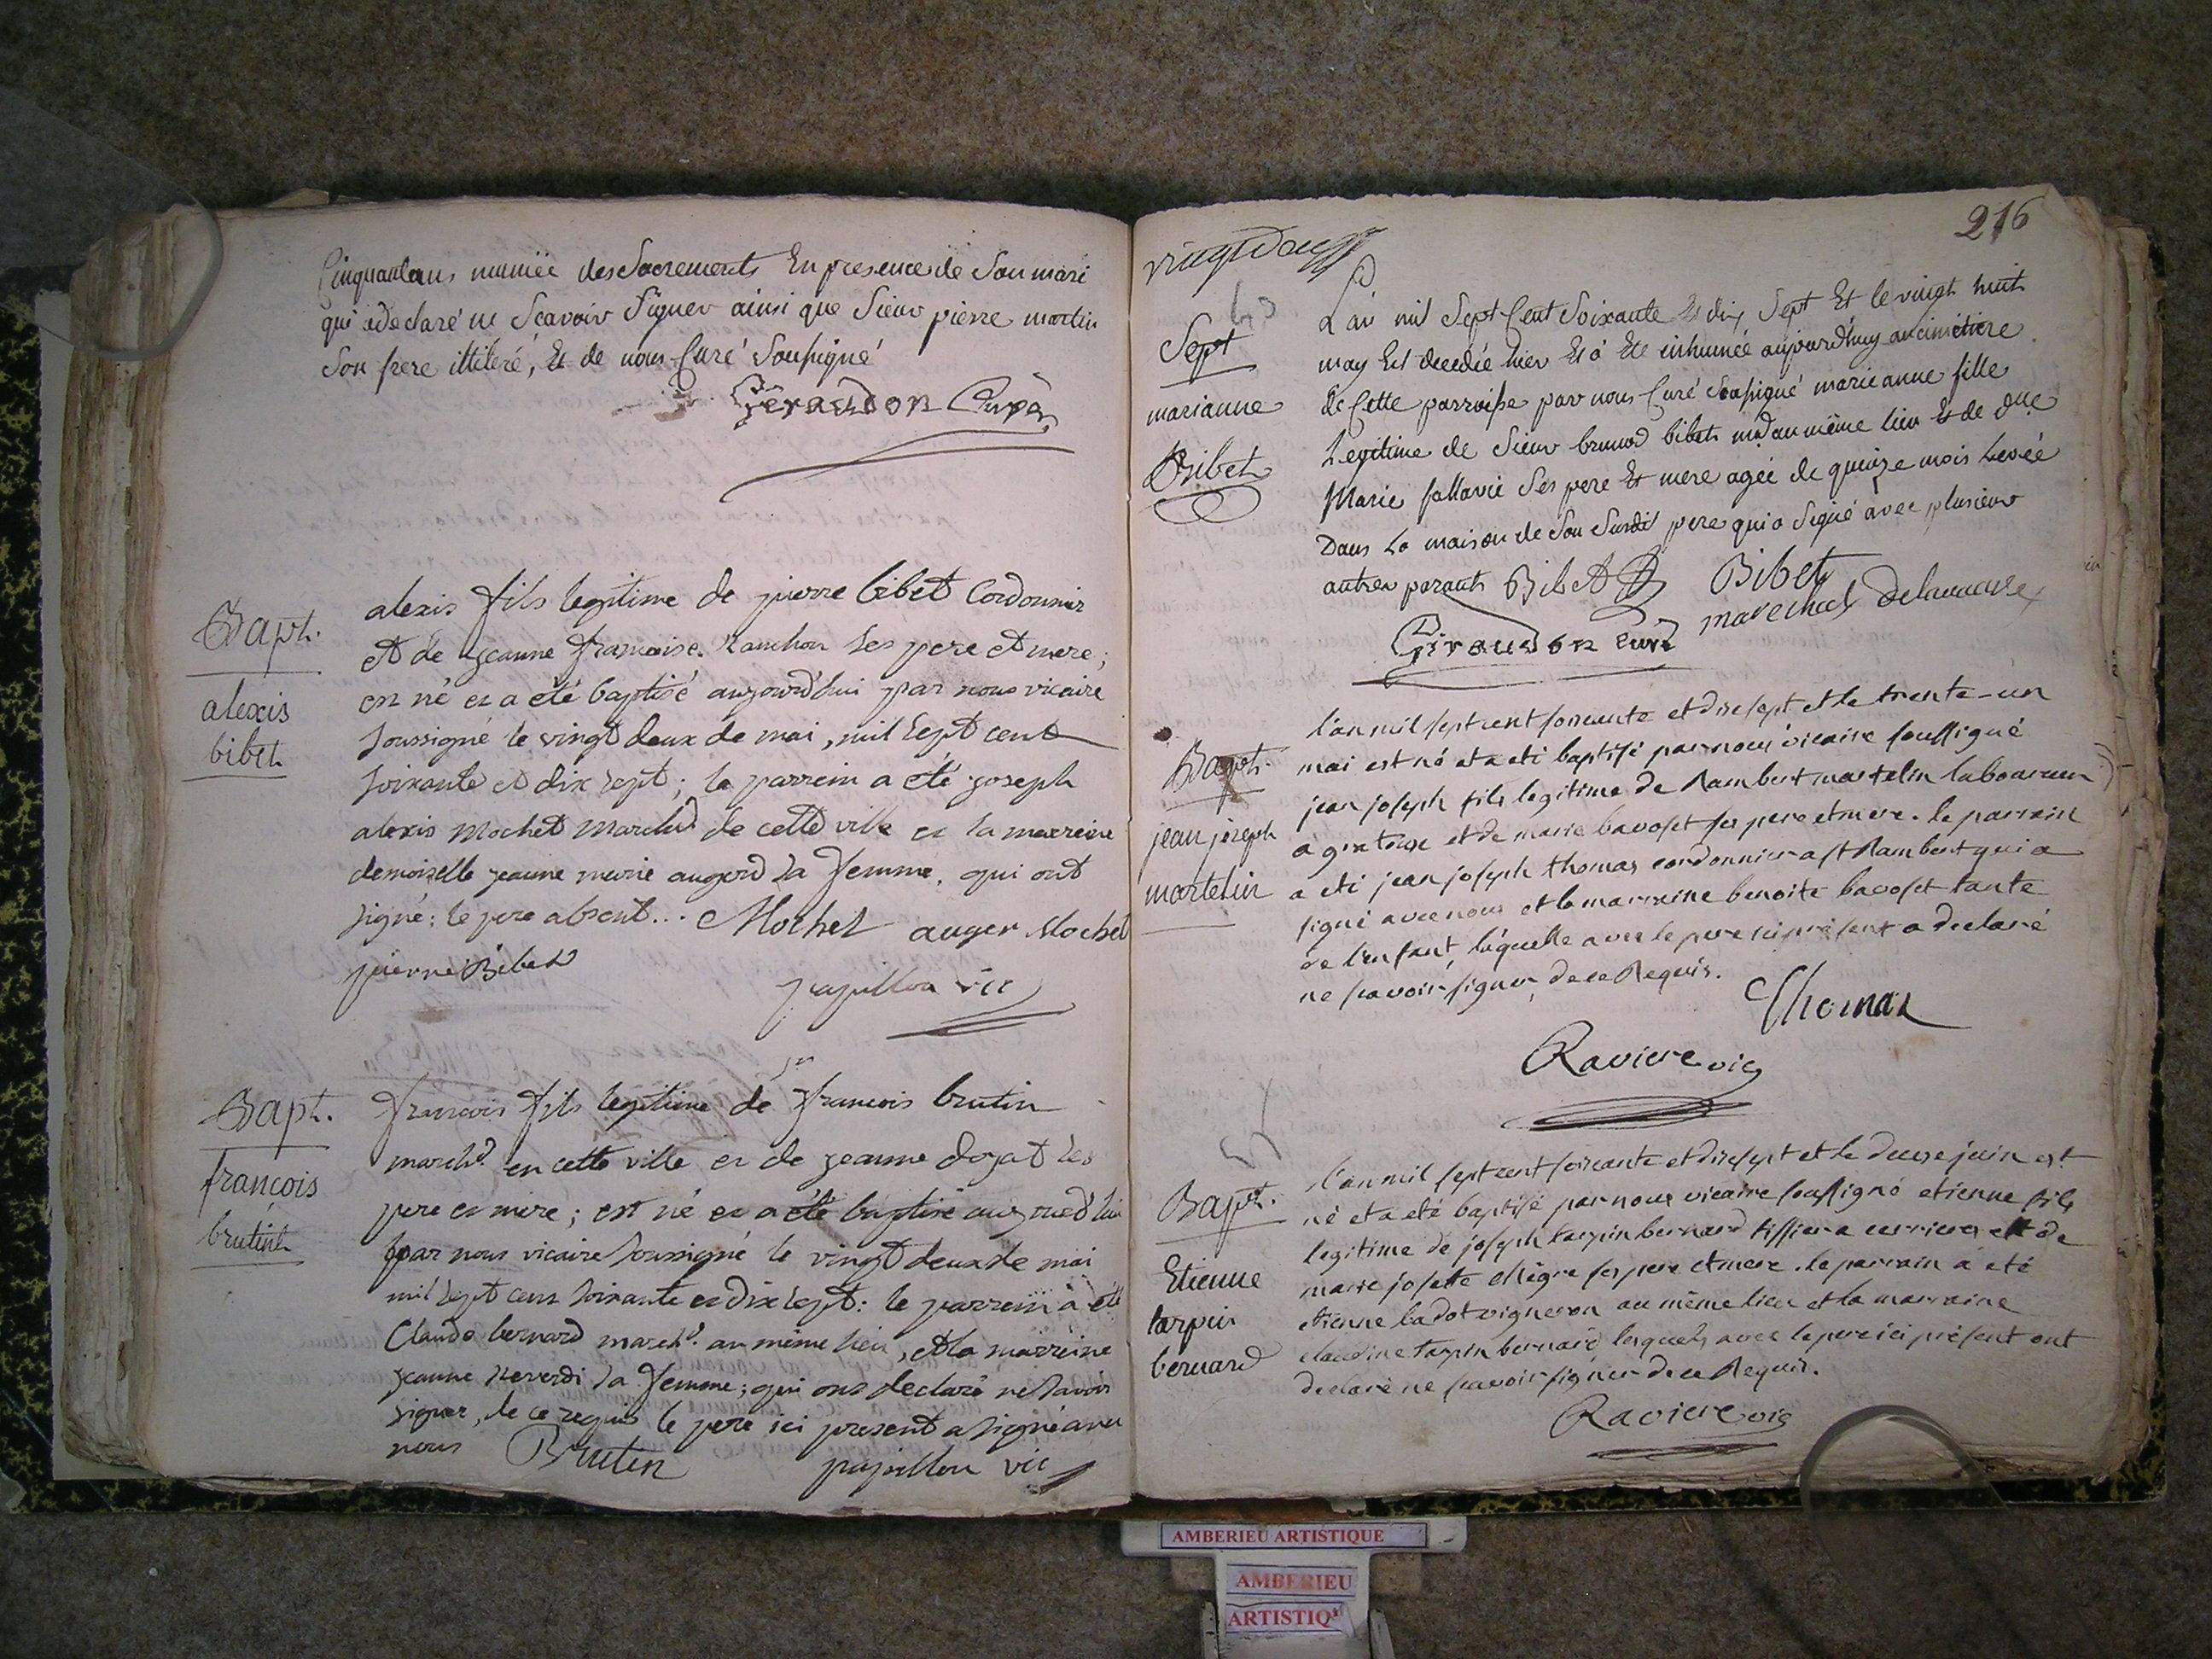 Cinquantans muniëe des Sacrements En presence de Son mari
qui a declaré ne Scavoir Signer ainsi que Sieur pierre martin
Son frere illiteré, Et de nous Curé Soussigné
Géraudon Curé
Bapt.
alexis
bibet
alexis fils legitime de pierre bibet Cordonnier
et de jeanne françoise Ranchon ses pere et mere;
est né et a été baptisé aujourd'hui par nous vicaire
soussigné le vingt deux de mai, mil sept cent
soixante et dix sept; le parrein a été joseph
alexis Mochet March.d de cette ville et la marreine
demoiselle jeanne marie augerd sa femme, qui ont
signé: le pere absent... Mochet auger Mochet
pierre Bibet
papillon vic
Bapt.
françois
brutin
françois fils legitime de sr françois brutin
march.d en cette ville et de jeanne dojat ses
pere et mere; est né et a été baptisé aujourd'hui
par nous vicaire soussigné le vingt deux de mai
mil sept cent soixante et dix sept: le parrein a été
Claude bernard march.d au même lieu, et la marreine
jeanne sa femme; qui ont declaré ne savoir
signer, de ce requis le pere ici present a signé avec
nous Brutin papillon vic
216
Sept
marianne
Bibet
L'an mil Sept Cent Soixante Et dix Sept Et le vingt huit
may Est decedée hier Et a Eté inhumée aujourd'huy au cimétiere
de Cette parroisse par nous Curé Soussigné marieanne fille
Legitime de Sieur brunod bibet md au même lieu Et de dlle
Marie fallavié Ses pere Et mere agée de quinze mois Levée
Dans La maison de Son Susdit pere qui a Signé avec plusieur
autres parants Bibet Bibet
marechal delamorte
Giraudon curé
Bapt.
jean joseph
martelin
l'an mil sept cent soixante et dix sept et le trente-un
mai est né et a eté baptisé par nous vicaire soussigné
jean joseph fils legitime de Rambert martelin laboureur
a et de marie bavoset ses pere et mere. le parrain
a eté jean joseph thomas cordonnier a st Rambert qui a
signé avec nous et la marraine benoite bavoset tante
de l'enfant, laquelle avec le pere ici présent a declaré
ne savoir signer de ce Requis.
Thomas
Raviere vic
Bapt.
Etienne
tarpin
bernard
l'an mil sept cent soixante et dix sept et le deuxe juin est
né et a eté baptisé par nous vicaire soussigné etienne fils
legitime de joseph tarpin bernard tissier a et de
marie josette allegre ses pere et mere. le parrain a eté
etienne ladot vigneron au même lieu et la marraine
claudine tarpin bernard lesquels avec le pere ici présent ont
declaré ne savoir signer de ce Requis.
Raviere vic
AMBERIEU ARTISTIQUE
AMBERIEU
ARTISTIQ